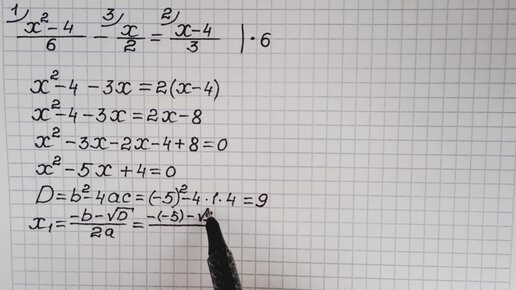 1) 3) 2)
(x² - 4)/6 - x/2 = (x - 4)/3 | · 6
x² - 4 - 3x = 2(x - 4)
x² - 4 - 3x = 2x - 8
x² - 3x - 2x - 4 + 8 = 0
x² - 5x + 4 = 0
D = b² - 4ac = (-5)² - 4 · 1 · 4 = 9
x₁ = (-b - √D)/2a = -(-5) - √